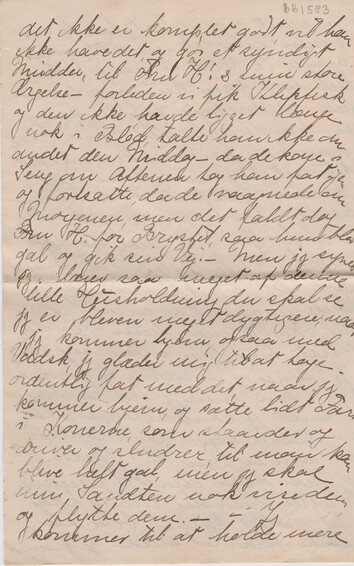 BB1583
det ikke er komplet godt vil han
ikke have det og gør et syndigt
Middag, til Fru H's min store
Ærgelse – forleden vi fik Klipfisk
og den ikke havde ligget længe
nok i Blød, talte han ikke om
andet den Middag – da de kom i
Seng om Aftenen tog han fat igen
og fortsatte, da de vaagnede om
Morgenen men det faldt dog
Fru H. for Brystet, saa hun blev
gal og gik sin Vej. – Men jeg synes
jeg lærer saa meget af denne
lille Husholdning, du skal se
jeg er bleven meget dygtigere, naar
jeg kommer hjem ogsaa med
Vadsk, jeg glæder mig til at tage
ordentlig fat med det naar jeg
kommer hjem, og sætte lidt Fart
i Konerne som staar der og
og sludrer til man kan
blive helt gal, men jeg skal
min Sandten nok vise dem
og flytte dem. – – Jeg
kommer til at holde mere